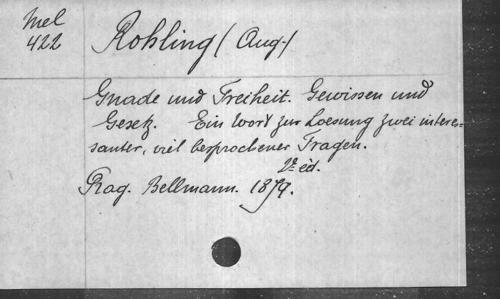 Mel
422
Rohling (Aug.)
Gnade und Freiheit. Gewissen und
Gesetz. Ein Wort zur Loesung zwei interes-
santer, viel besprochener Fragen.
2e éd.
Prag. Bellmann. 1879.